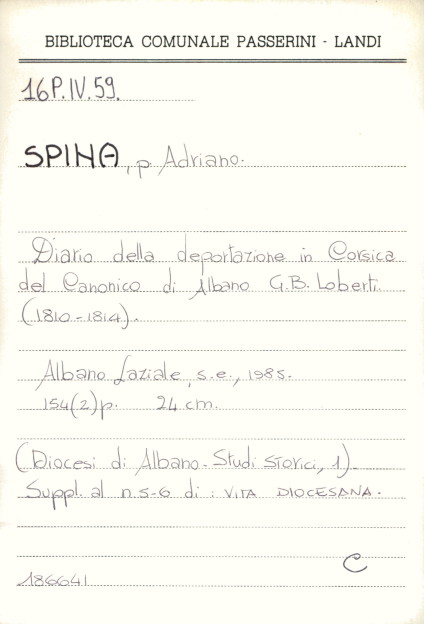 BIBLIOTECA COMUNALE PASSERINI - LANDI
16P.IV.59.
SPINA, p. Adriano.
Diario della deportazione in Corsica
del Canonico di Albano G.B. Loberti.
(1810-1814).
Albano Laziale, s.e., 1985.
154(2)p. 24 cm.
(Diocesi di Albano - Studi storici, 1).
Suppl. al n.5-6 di: VITA DIOCESANA.
C
186641